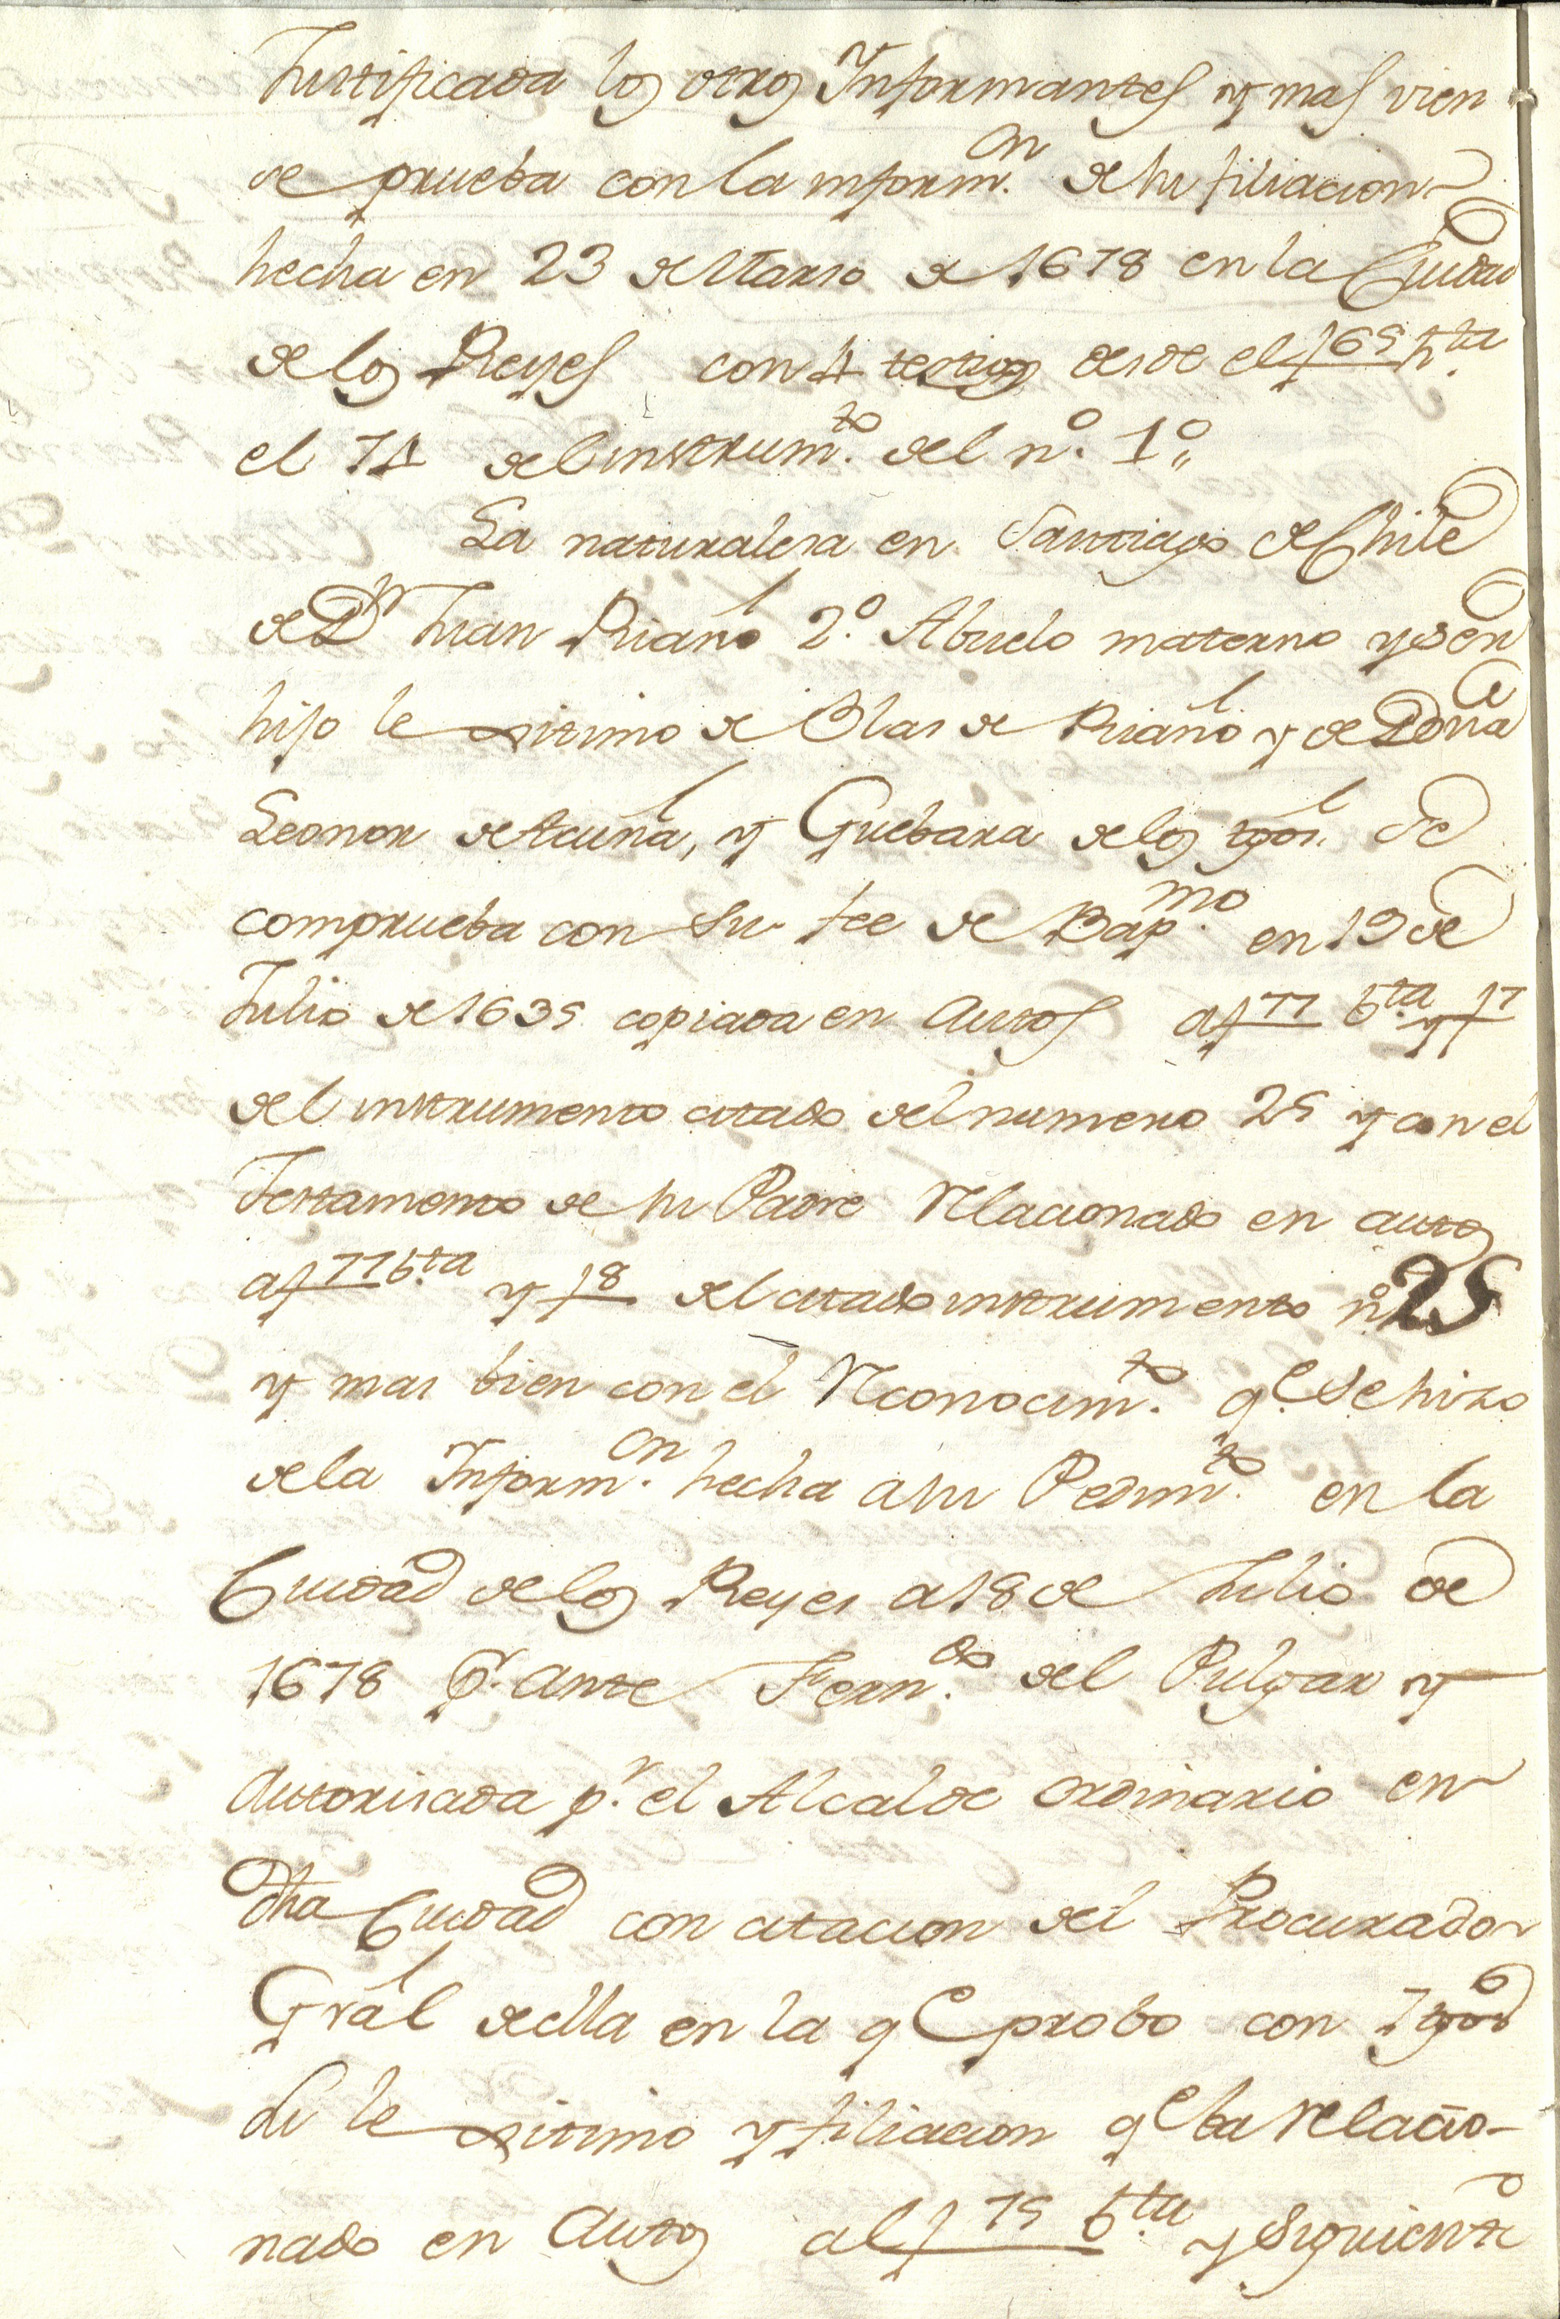 Justificada los otros Informantes y mas vien
se prueba con la inform.on de su filiacion
hecha en 23 de Marso de 1678 en la Ciudad
de los Reyes con 4 testigos desde el f 69 hta
el 74 del instrum.to del n.o 1o
La naturalesa en Santiago de Chile
de Dn Juan Riaño 2.o Abuelo materno y ser
hijo lexitimo de Blas de Riaño y de Doña
Leonor de Acuña, y Guebara de los
comprueba con su fee de Bap.mo en 19 de
Julio de 1635 copiada en Autos a f 77 bta y f 7
del instrumento citado del numero 25 y con el
Testamento de su Padre relacionado en autos
a f 77 b.ta y f 8 del citado instrumento no 25
y mas bien con el reconocim.to q.e se hizo
de la Inform.on hecha a su Pedim.to en la
Ciudad de los Reyes a 18 de Julio de
1678 p.r ante Fern.do del Pulgar y
Autorisada p.r el Alcalde ordinario en
dha Ciudad con citacion del Procurador
Gral de ella en la q e probo con 7 tgos
su lexitimo y filiacion q e ba relacio-
nado en Autos al f 75 b.ta y siguiente